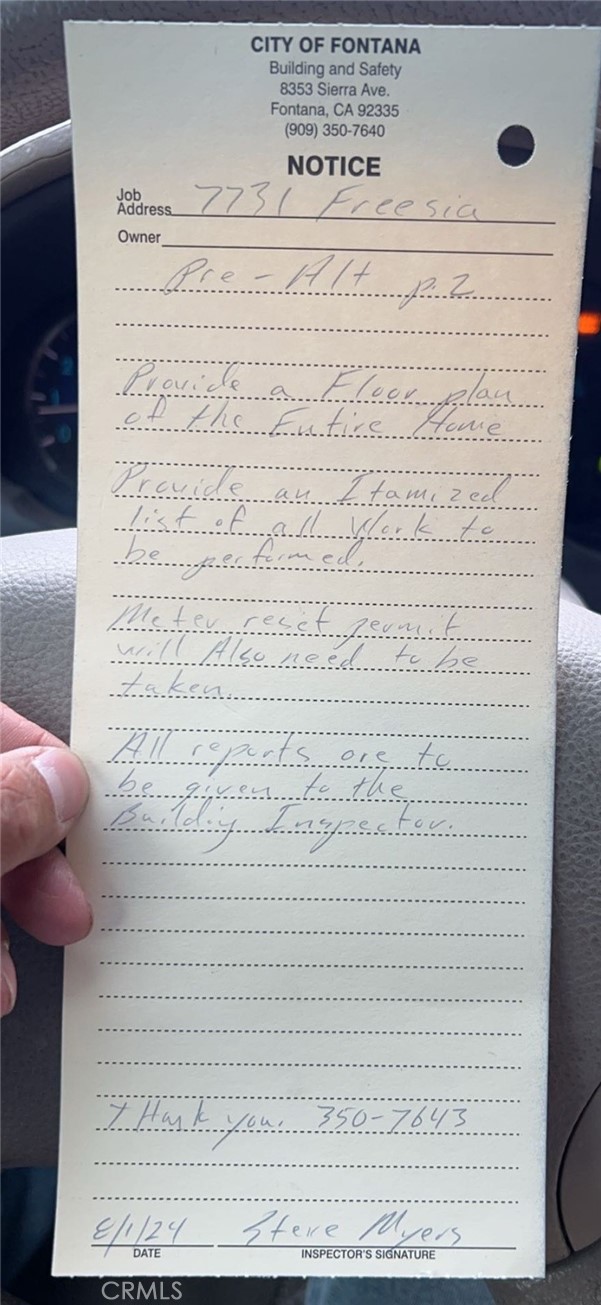 CITY OF FONTANA
Building and Safety
8353 Sierra Ave.
Fontana, CA 92335
(909) 350-7640
NOTICE
Job Address 7731 Freesia
Owner
Pre-Alt p.2
Provide a Floor plan
of the Entire Home
Provide an Itamized
list of all Work to
be performed.
Meter reset permit
will Also need to be
taken.
All reports are to
be given to the
Building Inspector.
Thank you. 350-7643
8/1/24 Steve Myers
DATE INSPECTOR'S SIGNATURE
CRMLS